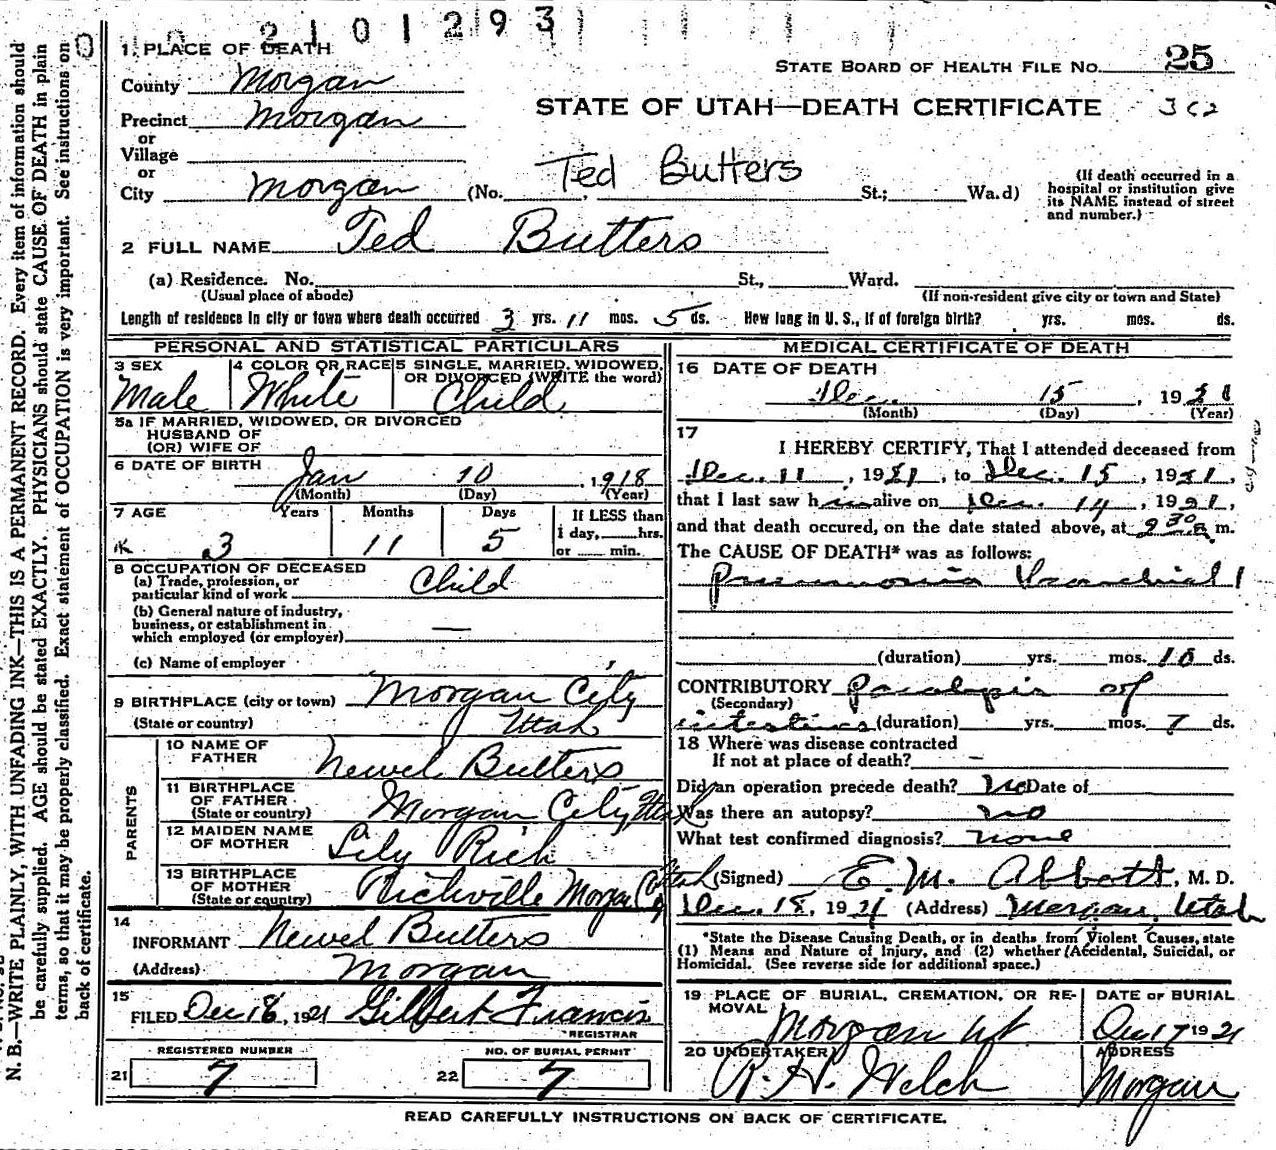 2101293
1. PLACE OF DEATH
STATE BOARD OF HEALTH FILE NO. 25
County Morgan
STATE OF UTAH—DEATH CERTIFICATE
Precinct Morgan
or
Village
or
City Morgan (No. Ted Butters St.; Wa.d)
(If death occurred in a
hospital or institution give
its NAME instead of street
and number.)
2 FULL NAME Ted Butters
(a) Residence. No. St., Ward.
(Usual place of abode) (If non-resident give city or town and State)
Length of residence in city or town where death occurred 3 yrs. 11 mos. 5 ds. How long in U. S., if of foreign birth? yrs. mos. ds.
PERSONAL AND STATISTICAL PARTICULARS
3 SEX Male
4 COLOR OR RACE White
5 SINGLE, MARRIED, WIDOWED,
OR DIVORCED (WRITE the word)
Child
5a IF MARRIED, WIDOWED, OR DIVORCED
HUSBAND OF
(OR) WIFE OF
6 DATE OF BIRTH Jan 10, 1918
(Month) (Day) (Year)
7 AGE Years Months Days If LESS than
3 11 5 1 day, hrs.
or min.
8 OCCUPATION OF DECEASED
(a) Trade, profession, or
particular kind of work Child
(b) General nature of industry,
business, or establishment in
which employed (or employer) —
(c) Name of employer
9 BIRTHPLACE (city or town) Morgan City
(State or country) Utah
PARENTS
10 NAME OF
FATHER Newel Butters
11 BIRTHPLACE
OF FATHER Morgan City, Utah
(State or country)
12 MAIDEN NAME
OF MOTHER Lily Rich
13 BIRTHPLACE
OF MOTHER Richville Morgan Co Utah
(State or country)
14
INFORMANT Newel Butters
(Address) Morgan
15
FILED Dec 18, 1921 Gilbert Francis
REGISTRAR
REGISTERED NUMBER NO. OF BURIAL PERMIT
21 7 22 7
MEDICAL CERTIFICATE OF DEATH
16 DATE OF DEATH
Dec. 15, 1921
(Month) (Day) (Year)
17
I HEREBY CERTIFY, That I attended deceased from
Dec. 11, 1921, to Dec. 15, 1921,
that I last saw him alive on Dec. 14, 1921,
and that death occured, on the date stated above, at 9 30 a m.
The CAUSE OF DEATH* was as follows:
Pneumonia Bronchial
(duration) yrs. mos. 10 ds.
CONTRIBUTORY Paralysis of
(Secondary)
intestines (duration) yrs. mos. 7 ds.
18 Where was disease contracted
If not at place of death? –
Did an operation precede death? No Date of
Was there an autopsy? no
What test confirmed diagnosis? none
(Signed) E. M. Abbott, M. D.
Dec. 18, 1921 (Address) Morgan, Utah
*State the Disease Causing Death, or in deaths from Violent Causes, state
(1) Means and Nature of Injury, and (2) whether (Accidental, Suicidal, or
Homicidal. (See reverse side for additional space.)
19 PLACE OF BURIAL, CREMATION, OR RE-
MOVAL Morgan Ut
DATE OF BURIAL
Dec 17 1921
20 UNDERTAKER
R. H. Welch
ADDRESS
Morgan
READ CAREFULLY INSTRUCTIONS ON BACK OF CERTIFICATE.
N. B.—WRITE PLAINLY, WITH UNFADING INK—THIS IS A PERMANENT RECORD. Every item of information should
be carefully supplied. AGE should be stated EXACTLY. PHYSICIANS should state CAUSE OF DEATH in plain
terms, so that it may be properly classified. Exact statement of OCCUPATION is very important. See instructions on
back of certificate.